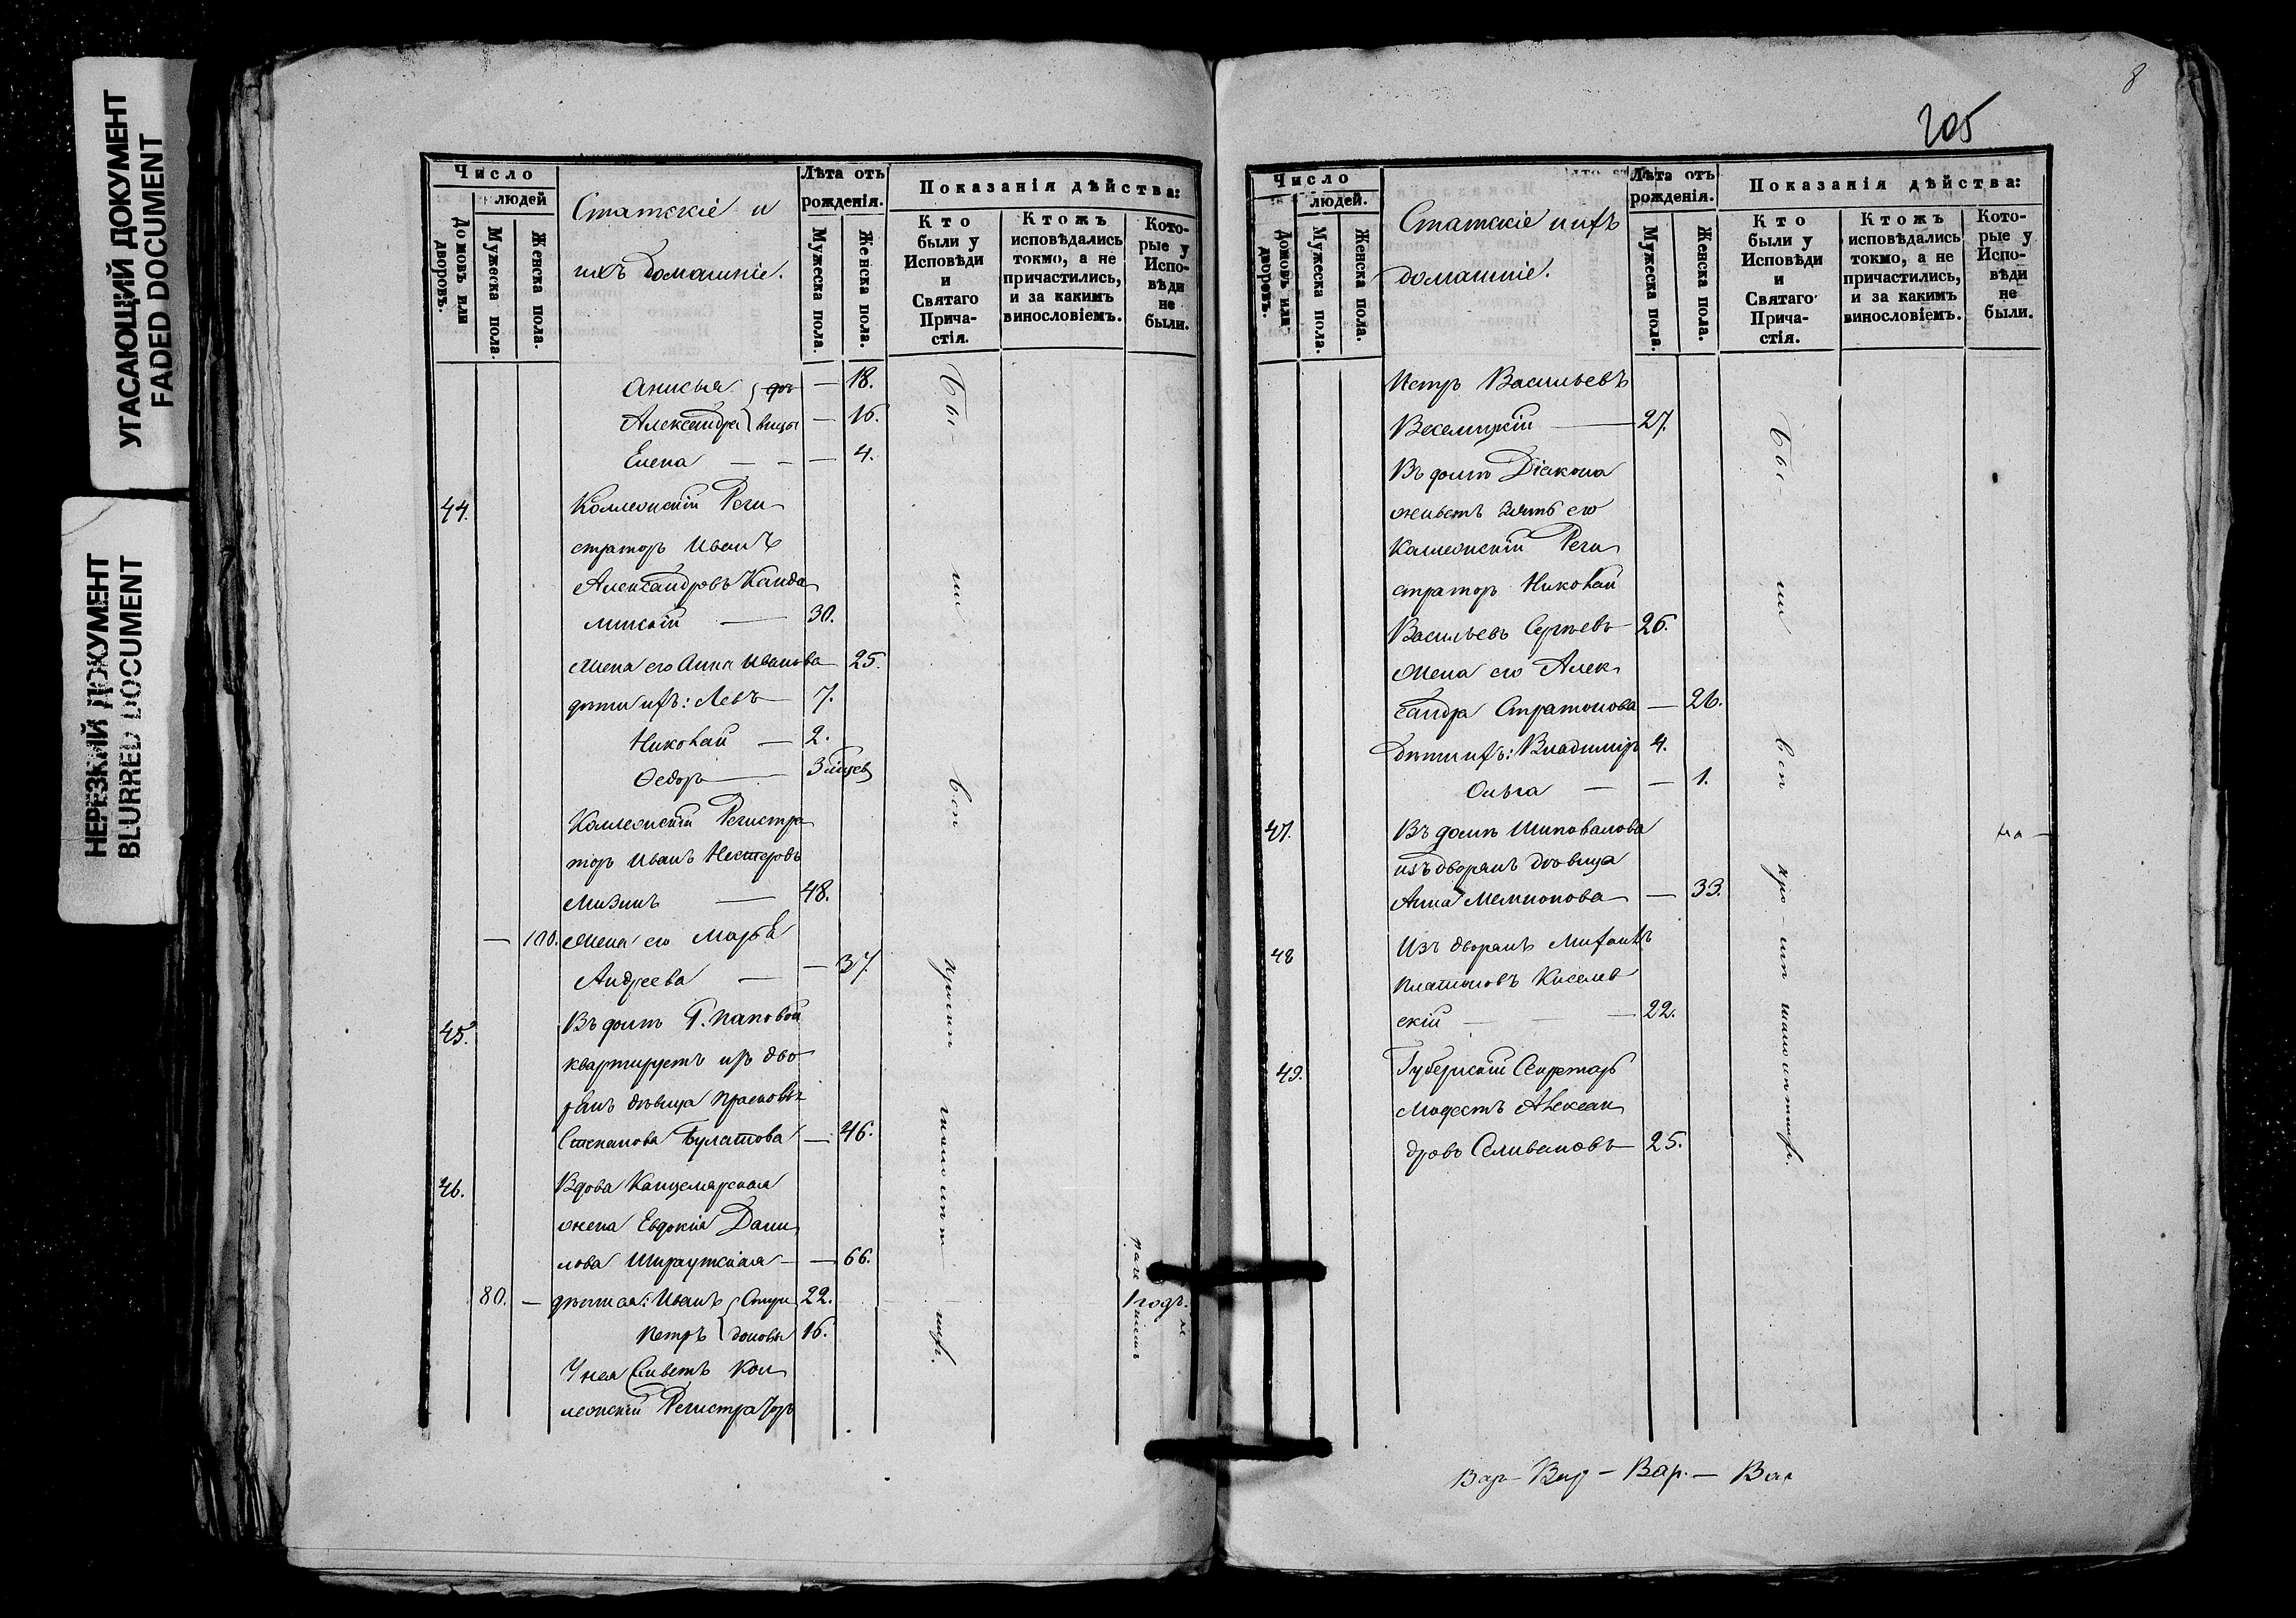 УГАСАЮЩИЙ ДОКУМЕНТ
FADED DOCUMENT
НЕРЕЗКИЙ ДОКУМЕНТ
BLURRED DOCUMENT
Число
людей
Домовъ или дворовъ.
Мужеска пола.
Женска пола.
Статскіе и
ихъ домашніе.
Лѣта отъ
рожденія.
Мужеска пола.
Женска пола.
Показанія дѣйства:
Кто
были у
Исповѣди
и
Святаго
Прича-
стія.
Ктожъ
исповѣдались
токмо, а не
причастились,
и за какимъ
винословіемъ.
Кото-
рые у
Испо-
вѣди
не
были.
Анисья — 18.
Александра вицы — 16.
Елена — — — 4.
44. Коллежскій Реги
страторъ Иванъ
Александровъ Канда
линскій — 30.
Жена его Анна Иванова 25.
дѣти ихъ: Левъ — 7.
Николай — 2.
Ѳедоръ — 3
Коллежскій Регистра
торъ Иванъ Нестеровъ
Мизинъ — 48.
— 100. Жена его Марѳа
Андреева — — 37.
45. Въ домѣ Г. Паповой
квартируетъ изъ дво
рянъ дѣвица Прасковья
Степанова Булатова — 46.
46. Вдова Канцелярская
жена Евдокія Дани
лова — 66.
80. — дѣти ея: Иванъ 22.
Петръ 16.
У нея Живетъ Кол
лежскій Регистраторъ
Бы-
ли
всѣ
кромѣ
205
8
Число
людей.
Домовъ или дворовъ.
Мужеска пола.
Женска пола.
Статскіе и ихъ
домашніе.
Лѣта отъ
рожденія.
Мужеска пола.
Женска пола.
Показанія дѣйства:
Кто
были у
Исповѣди
и
Святаго
Прича-
стія.
Ктожъ
исповѣдались
токмо, а не
причастились,
и за какимъ
винословіемъ.
Кото-
рые у
Испо-
вѣди
не
были.
Петръ Васильевъ
Веселицкій — 27.
Въ домѣ Діакона
живетъ зять его
Коллежскій Реги
страторъ Николай
Васильевъ Сергѣевъ 26.
Жена его Алек
сандра Стратонова — 26.
Дѣти ихъ: Владиміръ 4.
Ольга — — 1.
47. Въ домѣ Шиповалова
изъ дворянъ дѣвица
Анна Мемнонова — 33.
48 Изъ дворянъ Михаилъ
Платоновъ Киселев
скій — — — 22.
49. Губернскій Секретарь
Модестъ Алексан
дровъ Селивановъ — 25.
Бы-
ли
всѣ
кро-
мѣ
Вар — Вар — Вар. — Вар